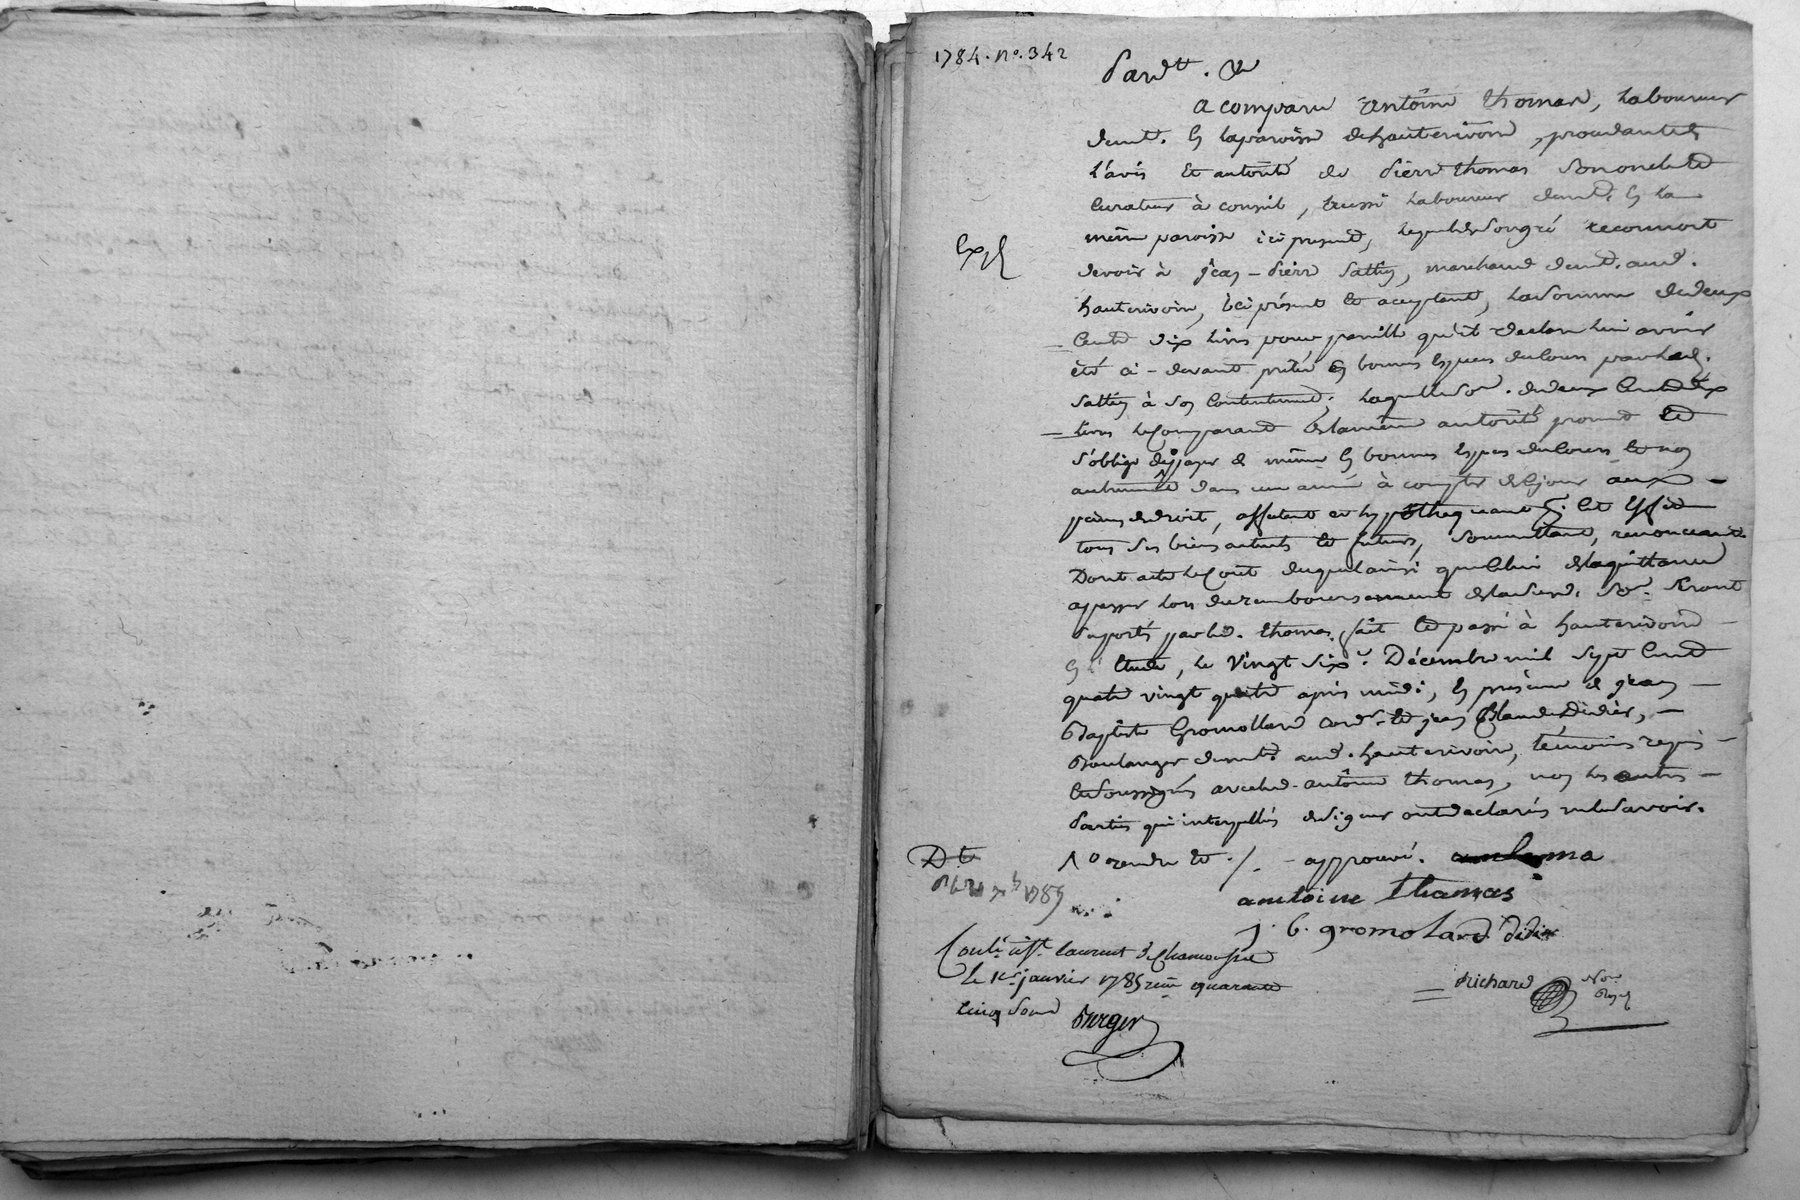 1784. n°. 342
Pardt. &
a comparu antoine thomas, Laboureur
demt. en laparoisse dehauterivoire, procedant de
L'avis et autorité de Pierre thomas son oncle et
Curateur à conseil, aussi Laboureur demt. en la
même paroisse ici present, lequel de songré reconnoit
Exp
devoir à jean-Pierre , marchand demt. aud.
hauterivoire, ici présent et acceptant, lasomme dedeux
Cents dix livres pour pareille qu'il declare lui avoir
été ci-devant prêtée en bonnes Espèces deCours par led.
à son Contentement; laquelle so. . dedeux Cents dix
livres leComparant delamême autorité promet et
s'oblige depayer de même en bonnes Espèces deCours et non
autrement dans une année à compter de ce jour aux
peines dedroit, affectant et hypothequant
tous ses biens actuels et futurs, soumettant, renonceant.
Dont acte leCoût duquel ainsi queCelui delaquittance
apasser lors duremboursement deladite. so. seront
suportés par led. thomas. fait et passé à hauterivoire
en l'Etude, le vingt six. Décembre mil sept Cent
quatre vingt quatre après midi, en présence de jean
Baptiste Gromollard cordr. et jean Claude Didier,
Boulanger demts. aud. hauterivoire, témoins requis
etsoussignés avecled. antoine thomas, non les autres
Parties qui interpellées designer ontdeclarés nelesavoir.
approuvé.
antoine thomas
j. b. gromolard didier
Richard Nore. Royal
1785
Conlé. à st. laurent deChamousset
le 1er. janvier 1785 reçu quarante
Cinq sous Berger